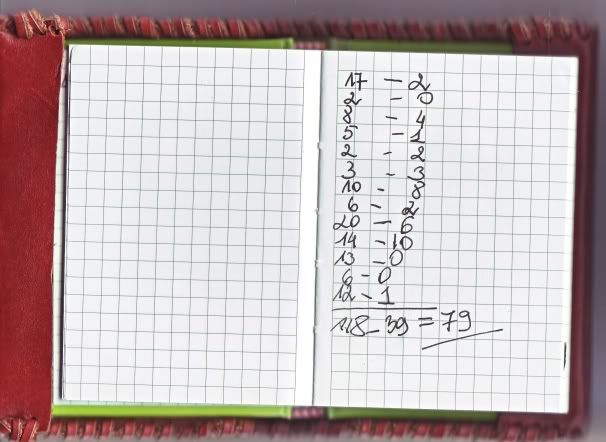 17 - 2
2 - 0
8 - 4
5 - 1
2 - 2
3 - 3
10 - 8
6 - 2
20 - 6
14 - 10
13 - 0
6 - 0
12 - 1
118 - 39 = 79